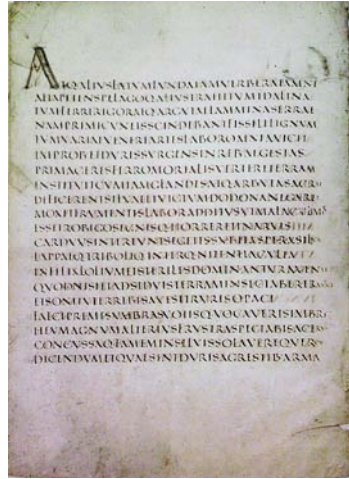 ATQ·ALIVSLATVMFVNDAIAMVERBERATAMNE
ALTAPETENSPELAGOQ·ALIVSTRAHITVMIDALINA
TVMFERRIRIGORATQ·ARGVTAELAMMINASERRAE
NAMPRIMICVNEISSCINDEBANTFISSILELIGNVM
TVMVARIAEVENEREARTESLABOROMNIAVICIT
IMPROBETDVRISVRGENSINREBVSEGESTAS
PRIMACERESFERROMORTALISVERTERETERRAM
INSTITVITCVMIAMGLANDESATQ·ARBVTASACRAE
DEFICERENTSILVAEETVICTVMDODONANEGARET
MOXETFRVMENTISLABORADDITVSVTMALACVLMOS
ESSETROBIGOSEGNISQ·HORRERETINARVIS
CARDVVSINTEREVNTSEGETESSVBITASPERASILVA
LAPPAEQ·TRIBOLIQ·INTERQ·NITENTIACVLTA
INFELIXLOLIVMETSTERILESDOMINANTVRAVENAE
QVODNISIETADSIDVISTERRAMINSECTABERERASTRIS
ETSONITVTERREBISAVESETRVRISOPACI
FALCEPREMESVMBRASVOTISQ·VOCAVERISIMBREM
HEVMAGNVMALTERIVSFRVSTRASPECTABISACERVOM
CONCVSSAQ·FAMEMINSILVISSOLAVEREQVERCV
DICENDVMETQVAESINTDVRISAGRESTIBARMA